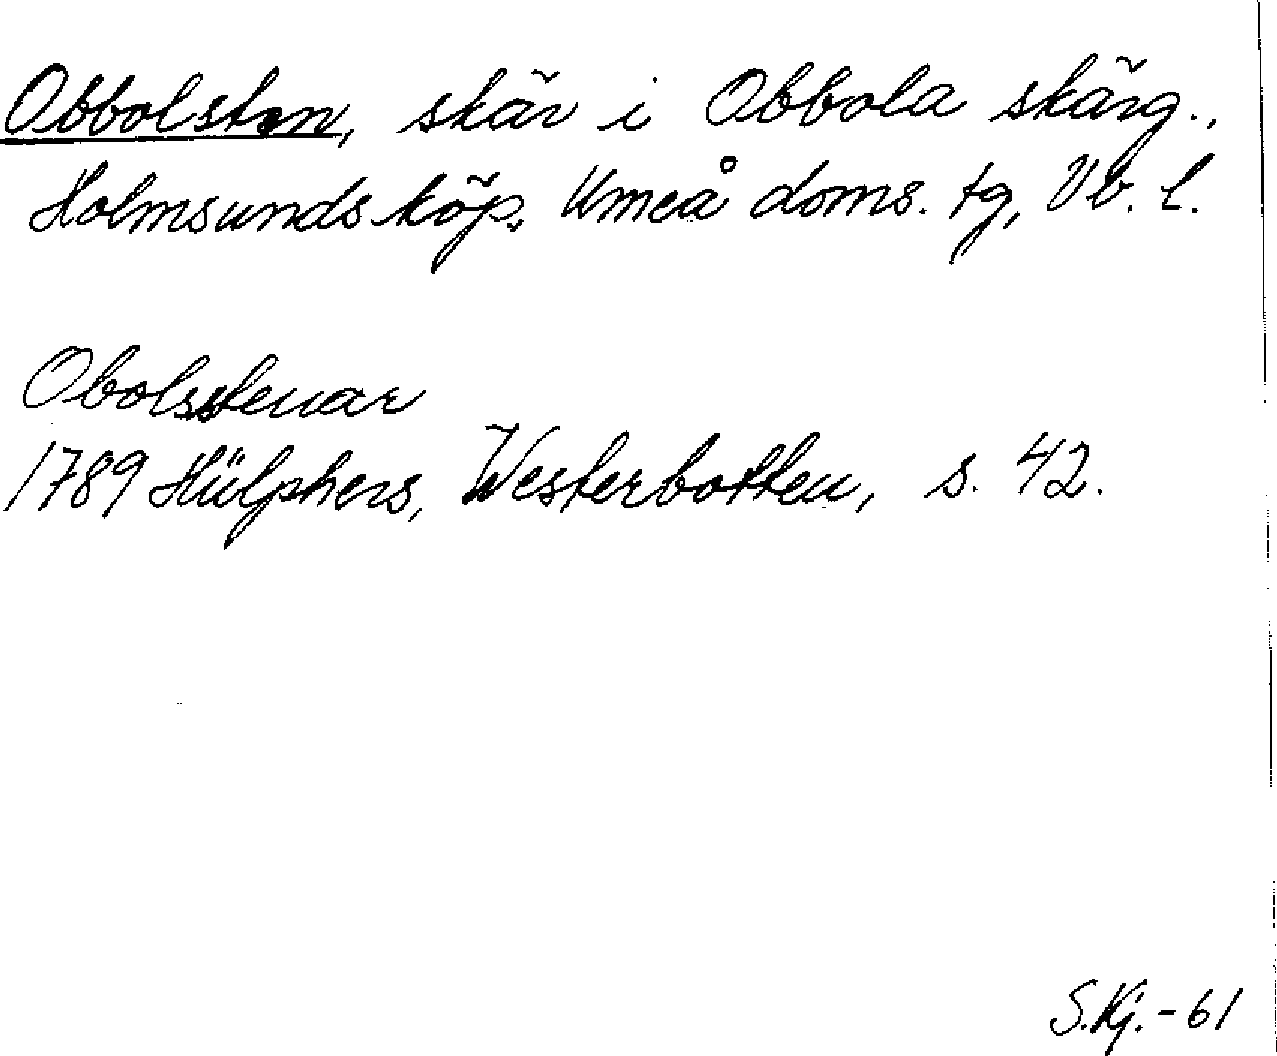 Obbolsten, skär i Obbola skärg.,
Holmsunds köp., Umeå doms. tg, Vb. l.
Obolsstenar
1789 Hülphers, Westerbotten, s. 42.
S.Kg.-61